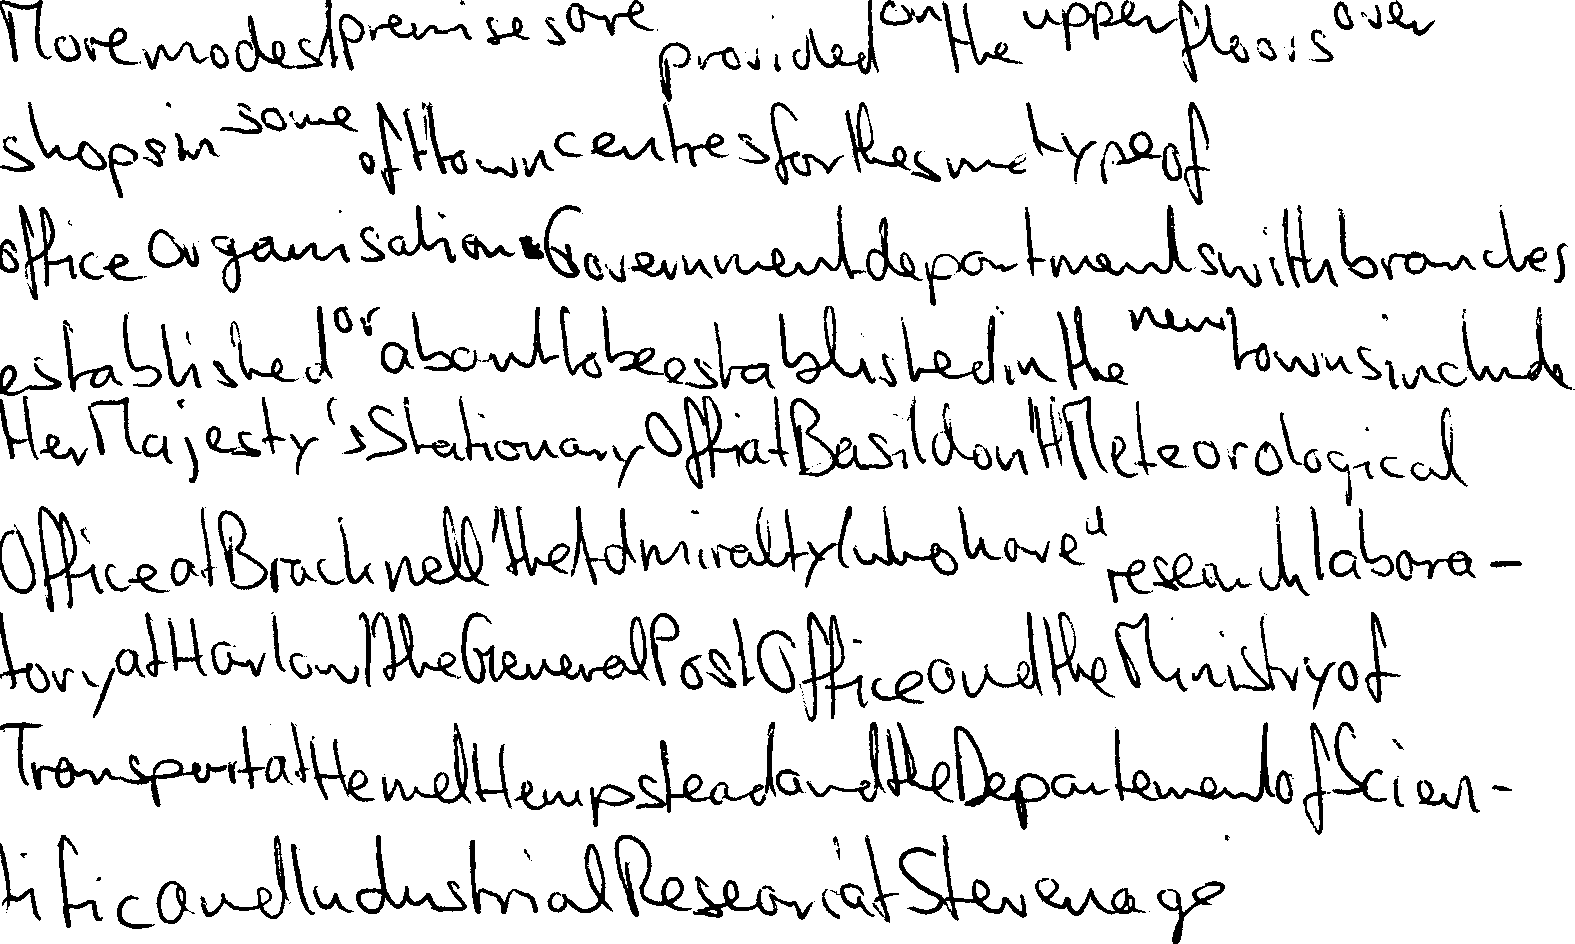 More modest premises are provided on the upper floors over
shops in some of t town centres for the sme type of
office organisation. Government departments with branches
established or about to be established in the new towns include
Her Majesty's Stationary Offi at Basildon Meteorological
Office at Bracknell the Admiralty (who have a research labora-
tory at Harlow) the General Post Office and the Ministry of
Transport at Hemel Hempstead and the Departement of Scien-
tific and Industrial Research at Stevenage